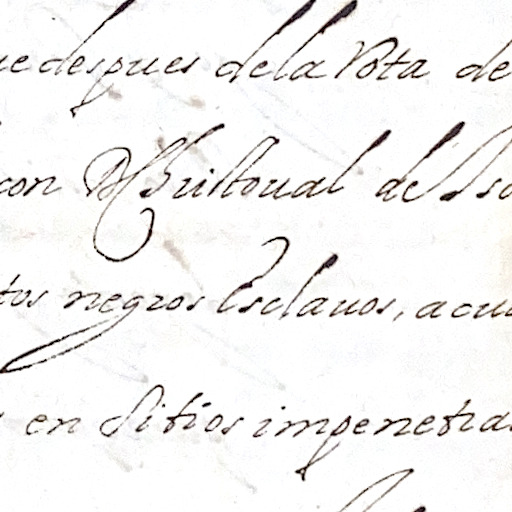 ue despues de la Rota de
con D Christoual de Iso
tos negros Esclauos, a cu
en Sitios impenetra